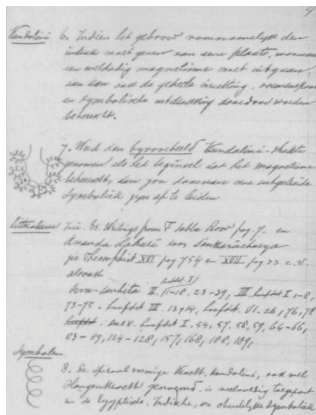 Kundalini 6. Indien het gebouw voornamelijk den
indruk moet geven van eene plaats, waarvan
een weldadig magnetisme moet uitgaan,
dan kan ook de geheele inrichting,
en symbolische uitbeelding daardoor worden
beheerscht.
7. Werd dan bijvoorbeeld Kundalini-
genomen als het beginsel dat het magnetisme
beheerscht, dan zou daarvan eene uitgebreide
symboliek zijn af te leiden
Litteratuur Zie: Es. Writings from T Subba Row pag. 7. en
Ananda Lahari van Sankaracharya
zie Theosophist XVI pag 754 en XVII pag 33 e.v.
alsook
Siva-sanhita II, 11-18, 23-29, III, hoofdst I 1-8,
73-75. hoofdst III. 13, 14, hoofdst. 
 hoofdst I. 54, 57, 58, 59, 64-66,
 124-128, 157, 168,
Symbolen
8. De spiraalvormige kracht, kundalini, ook wel
Slangenkracht genoemd, is veelvuldig toegepast
in de Egyptische, Indische, en Symboliek